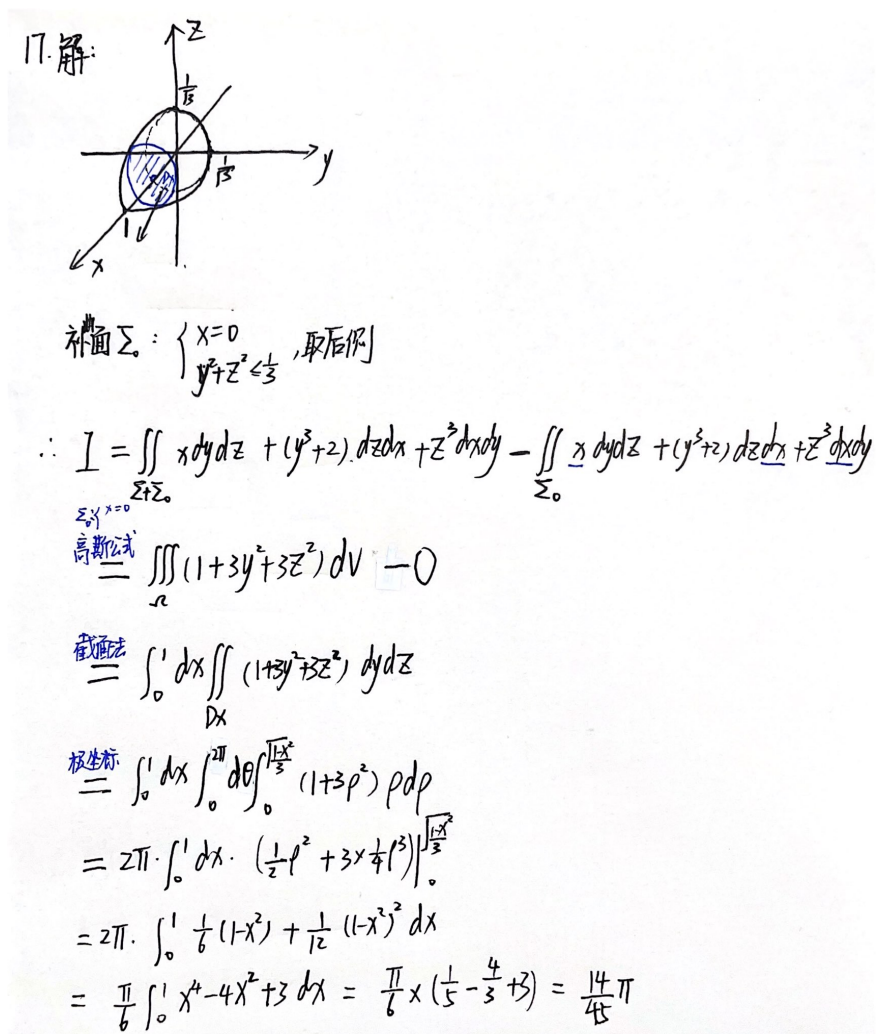 17. 解:
z
1/√3
y
1/√3
1
x
补面Σ₀: { x=0
y²+z²≤1/3 ,取后侧
∴ I = ∬_{Σ+Σ₀} xdydz + (y³+2).dzdx + z³dxdy - ∬_{Σ₀} x dydz + (y³+2) dzdx + z³dxdy
Σ₀: x=0
高斯公式 = ∭_Ω (1+3y²+3z²) dV - 0
截面法 = ∫₀¹ dx ∬_{Dx} (1+3y²+3z²) dydz
极坐标 = ∫₀¹ dx ∫₀^{2π} dθ ∫₀^{√((1-x²)/3)} (1+3ρ²) ρdρ
= 2π·∫₀¹ dx·(1/2 ρ² + 3×1/4 ρ³)|₀^{√((1-x²)/3)}
= 2π·∫₀¹ 1/6 (1-x²) + 1/12 (1-x²)² dx
= π/6 ∫₀¹ x⁴-4x²+3 dx = π/6 × (1/5 - 4/3 + 3) = 14/45 π